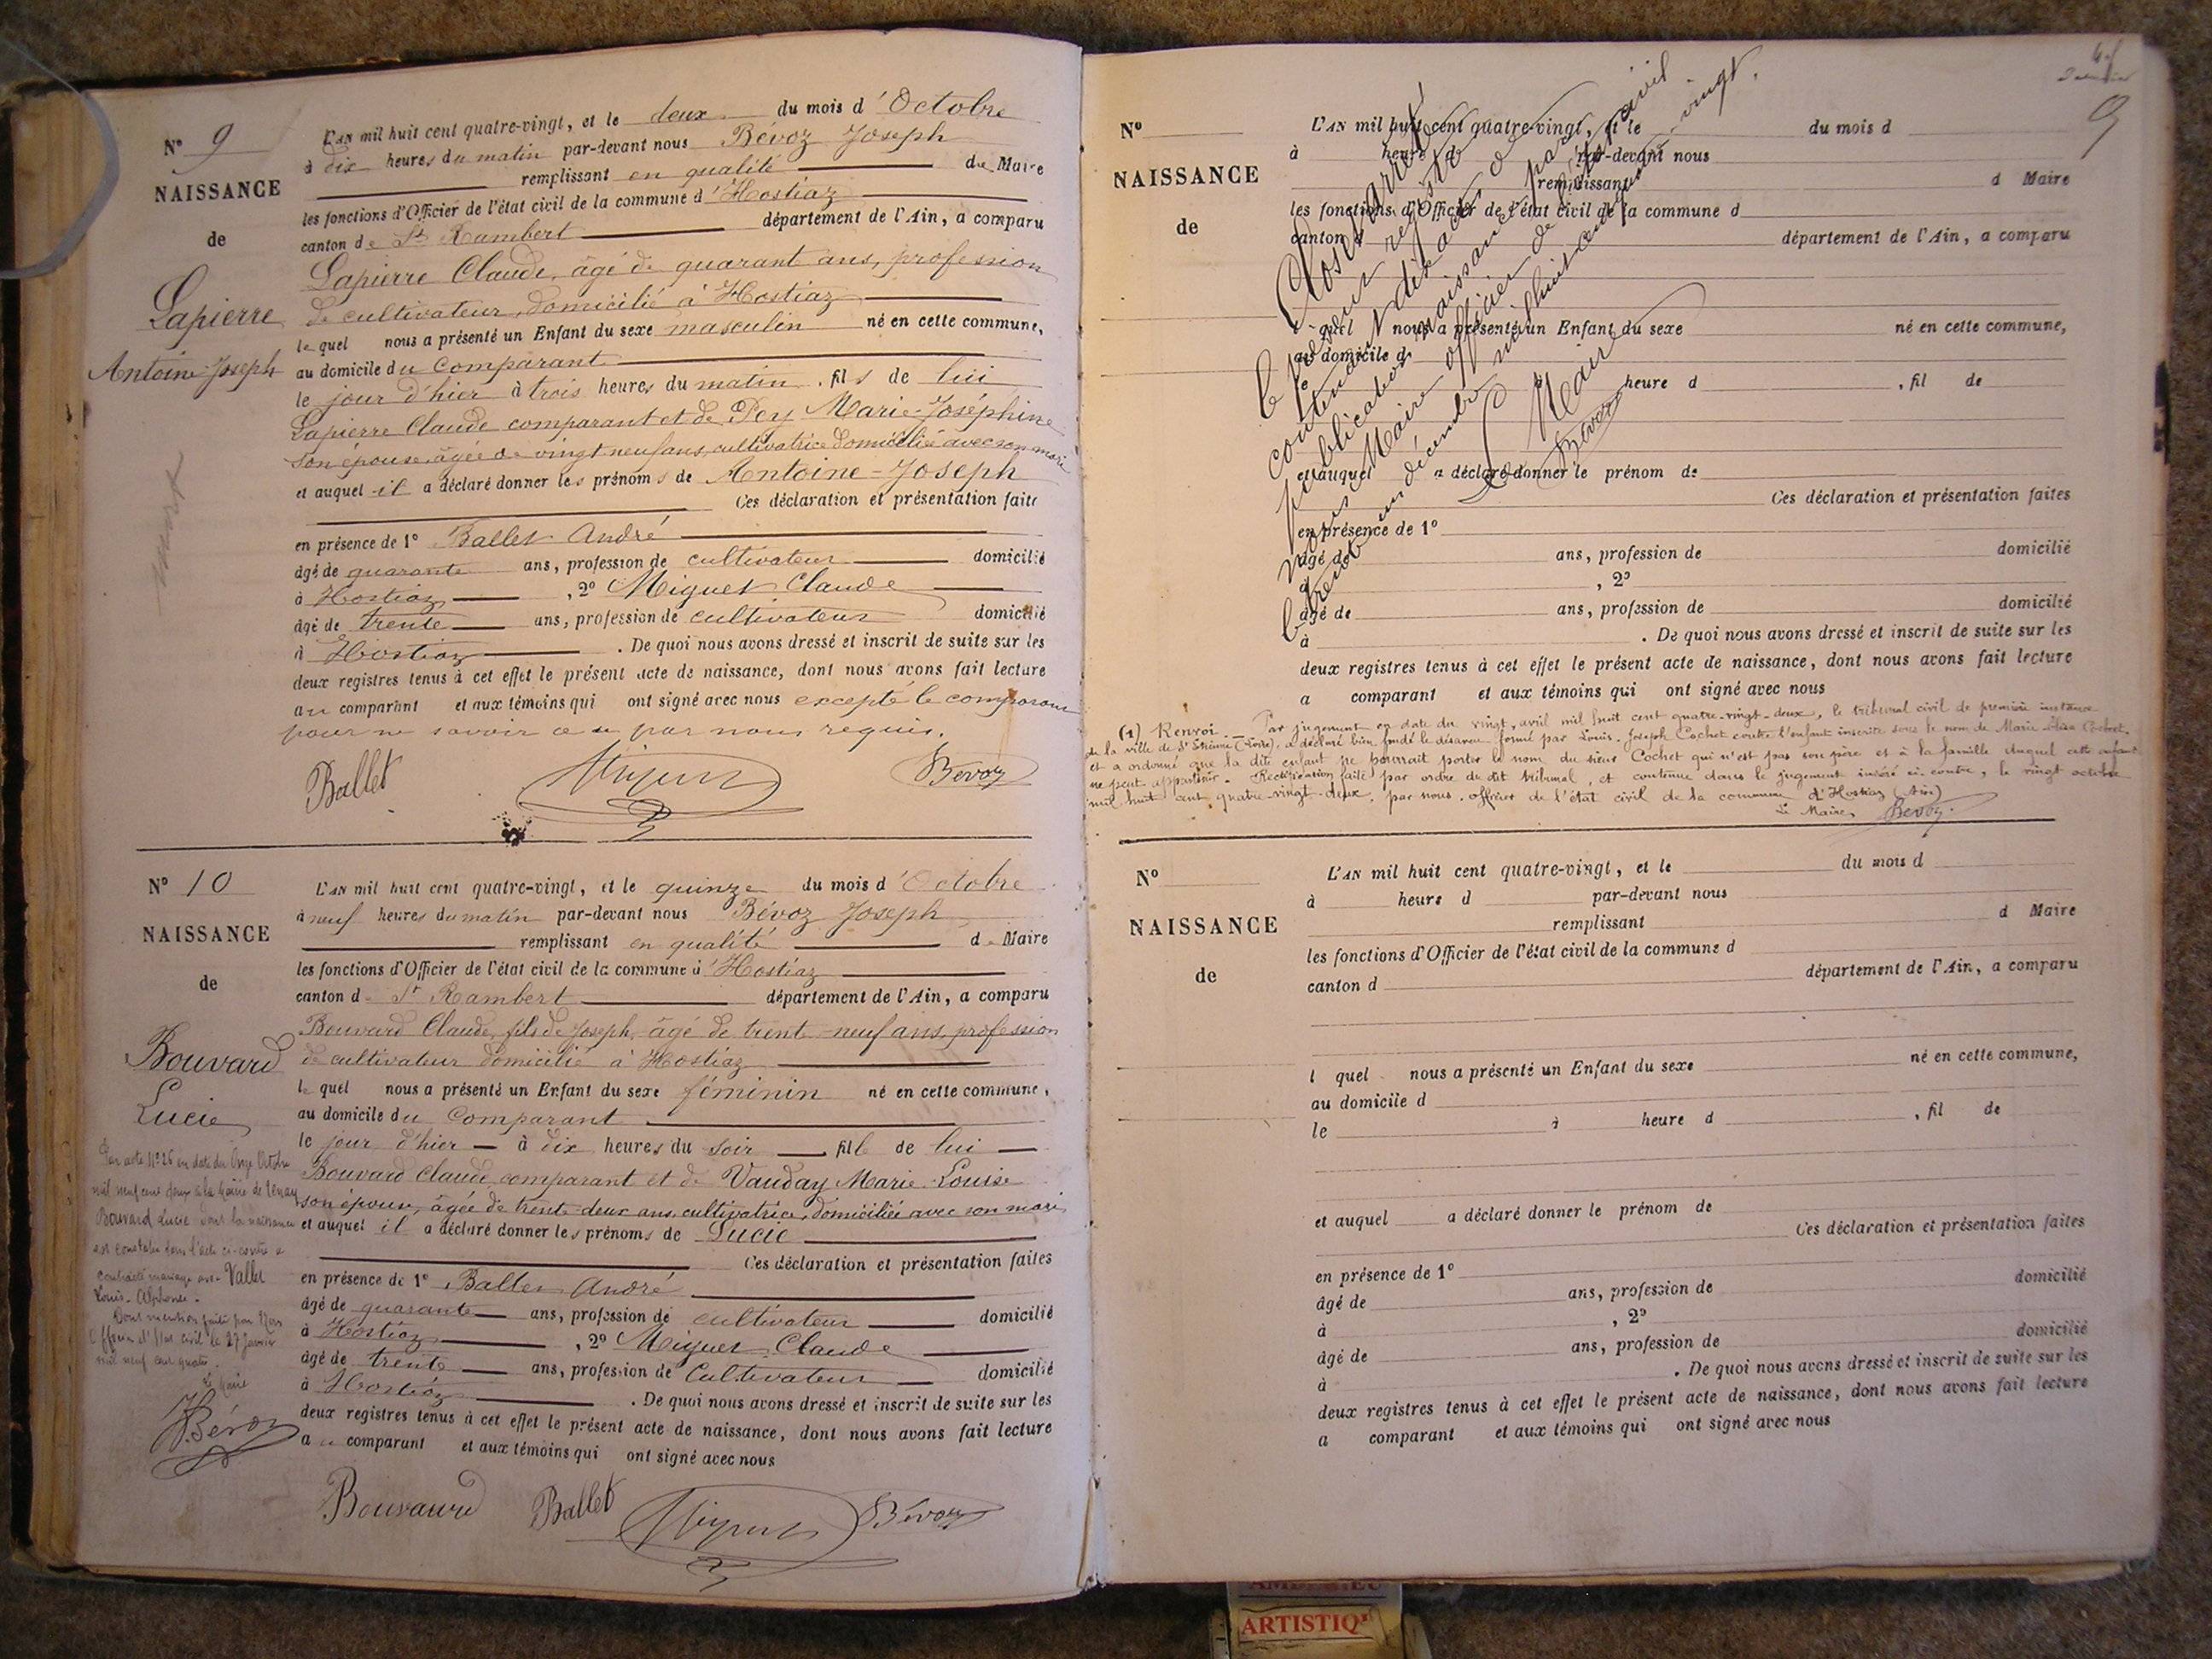 N° 9
NAISSANCE
de
Lapierre
Antoine-Joseph
L'AN mil huit cent quatre-vingt, et le deux du mois d'Octobre
à dix heures du matin par-devant nous Bévoz Joseph
remplissant en qualité de Maire
les fonctions d'Officier de l'état civil de la commune d'Hostiaz
canton de St Rambert département de l'Ain, a comparu
Lapierre Claude, âgé de quarant ans, profession
de cultivateur, domicilié à Hostiaz
le quel nous a présenté un Enfant du sexe masculin né en cette commune,
au domicile du comparant
le jour d'hier à trois heures du matin, fils de lui
Lapierre Claude comparant et de Pey Marie-Joséphine
son épouse, âgée de vingt neuf ans, cultivatrice domiciliée avec son mari
et auquel il a déclaré donner les prénoms de Antoine-Joseph
Ces déclaration et présentation faites
en présence de 1° Ballet André
âgé de quarante ans, profession de cultivateur domicilié
à Hostiaz, 2° Miguet Claude
âgé de trente ans, profession de cultivateur domicilié
à Hostiaz. De quoi nous avons dressé et inscrit de suite sur les
deux registres tenus à cet effet le présent acte de naissance, dont nous avons fait lecture
au comparant et aux témoins qui ont signé avec nous excepté le comparant
pour ne savoir ce par nous requis.
Ballet Miguet Bévoz
N° 10
NAISSANCE
de
Bouvard
Lucie
L'AN mil huit cent quatre-vingt, et le quinze du mois d'Octobre
à neuf heures du matin par-devant nous Bévoz Joseph
remplissant en qualité de Maire
les fonctions d'Officier de l'état civil de la commune d'Hostiaz
canton de St Rambert département de l'Ain, a comparu
Bouvard Claude, fils de Joseph, âgé de trente-neuf ans, profession
de cultivateur domicilié à Hostiaz
le quel nous a présenté un Enfant du sexe féminin né en cette commune,
au domicile du comparant
le jour d'hier à dix heures du soir fille de lui
Bouvard Claude, comparant et de Vauday Marie-Louise
son épouse, âgée de trente deux ans, cultivatrice, domiciliée avec son mari,
et auquel il a déclaré donner les prénoms de Lucie
Ces déclaration et présentation faites
en présence de 1° Ballet André
âgé de quarante ans, profession de cultivateur domicilié
à Hostiaz, 2° Miguet Claude
âgé de trente ans, profession de Cultivateur domicilié
à Hostiaz. De quoi nous avons dressé et inscrit de suite sur les
deux registres tenus à cet effet le présent acte de naissance, dont nous avons fait lecture
au comparant et aux témoins qui ont signé avec nous
Bouvard Ballet Miguet Bévoz
Par acte N° 26 en date du Onze Octobre
mil neuf cent deux à la Mairie de Tenay
Bouvard Lucie dont la naissance
est constatée dans l'acte ci-contre a
contracté mariage avec Vallet
Louis-Alphonse.
Dont mention faite par Nous
Officier d'Etat civil le 27 Janvier
mil neuf cent quatre.
Le Maire
Bévoz
9
N°
NAISSANCE
de
L'AN mil huit cent quatre-vingt, et le du mois d
à heure d par-devant nous
remplissant d Maire
les fonctions d'Officier de l'état civil de la commune d
canton d département de l'Ain, a comparu
l quel nous a présenté un Enfant du sexe né en cette commune,
au domicile d
le à heure d , fil de
et auquel a déclaré donner le prénom de
Ces déclaration et présentation faites
en présence de 1°
âgé de ans, profession de domicilié
à , 2°
âgé de ans, profession de domicilié
à . De quoi nous avons dressé et inscrit de suite sur les
deux registres tenus à cet effet le présent acte de naissance, dont nous avons fait lecture
a comparant et aux témoins qui ont signé avec nous
Clos et arrêté
le présent registre
contenant dix actes de
publication naissance par
nous Maire officier de l'état civil
le trente un décembre mil huit cent quatre-vingt.
Le Maire
Bévoz
(1) Renvoi. Par jugement en date du vingt avril mil huit cent quatre-vingt-deux, le tribunal civil de première instance
de la ville de St Etienne (Loire), a déclaré bien fondé le désaveu formé par Louis-Joseph Cochet contre l'enfant inscrite sous le nom de Marie Cochet
et a ordonné que la dite enfant ne pourrait porter le nom du sieur Cochet qui n'est pas son père et à la famille duquel cette enfant
ne peut appartenir. Rectification faite par ordre du dit tribunal, et contenue dans le jugement inséré ci-contre, le vingt octobre
mil huit cent quatre-vingt-deux, par nous, officier de l'état civil de la commune d'Hostiaz (Ain)
Le Maire, Bévoz
N°
NAISSANCE
de
L'AN mil huit cent quatre-vingt, et le du mois d
à heure d par-devant nous
remplissant d Maire
les fonctions d'Officier de l'état civil de la commune d
canton d département de l'Ain, a comparu
l quel nous a présenté un Enfant du sexe né en cette commune,
au domicile d
le à heure d , fil de
et auquel a déclaré donner le prénom de
Ces déclaration et présentation faites
en présence de 1°
âgé de ans, profession de domicilié
à , 2°
âgé de ans, profession de domicilié
à . De quoi nous avons dressé et inscrit de suite sur les
deux registres tenus à cet effet le présent acte de naissance, dont nous avons fait lecture
a comparant et aux témoins qui ont signé avec nous
ARTISTIQ